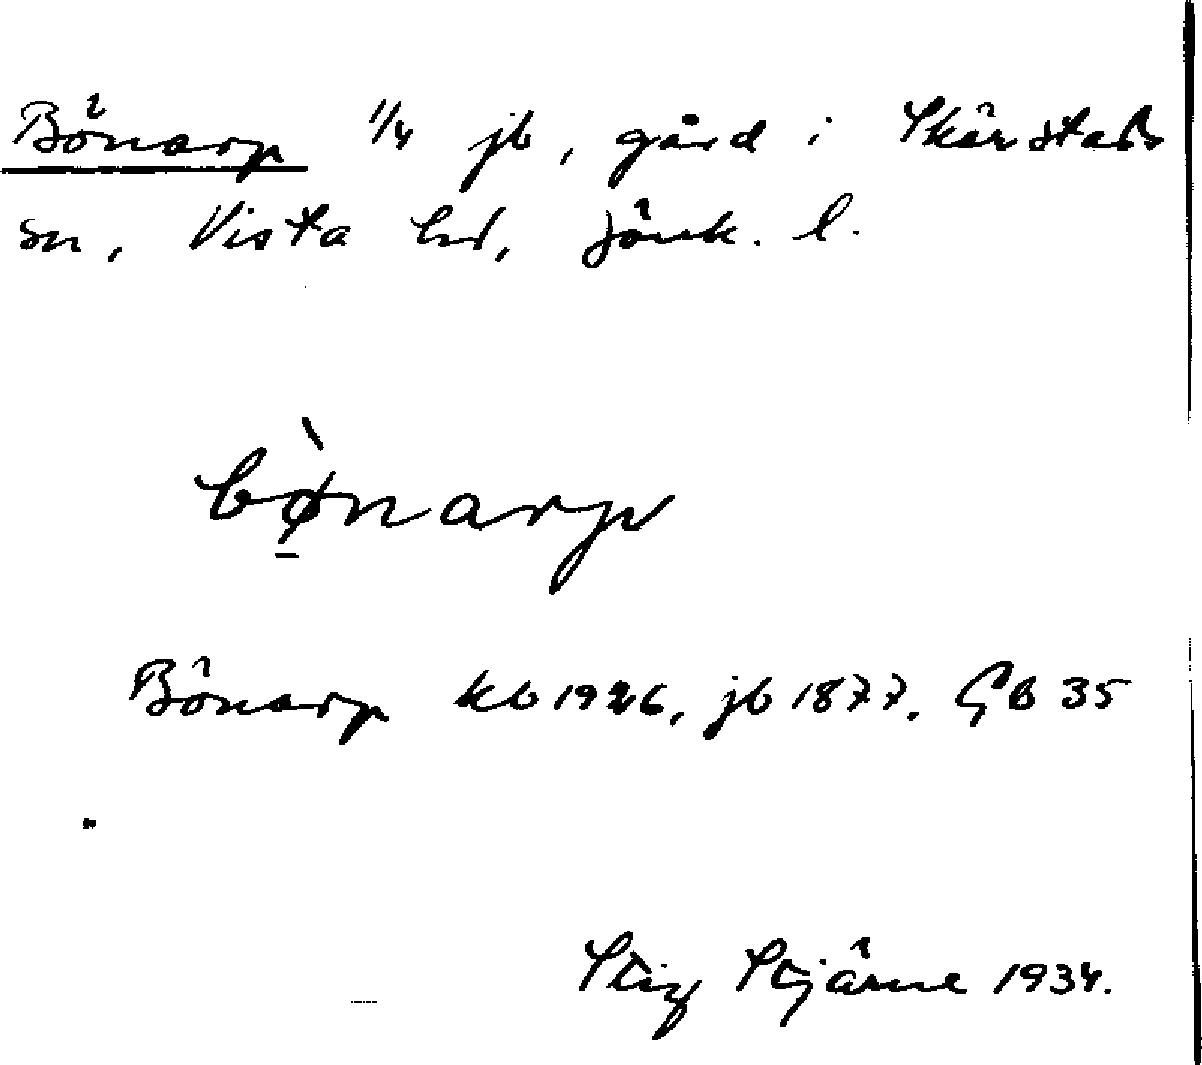 Bönarp 1/4 jb, gård i Skärstads
sn, Vista hd, Jönk. l.
bø̠̀narp
Bönarp kb 1926, jb 1877, GB 35
Stig Stjärne 1934.